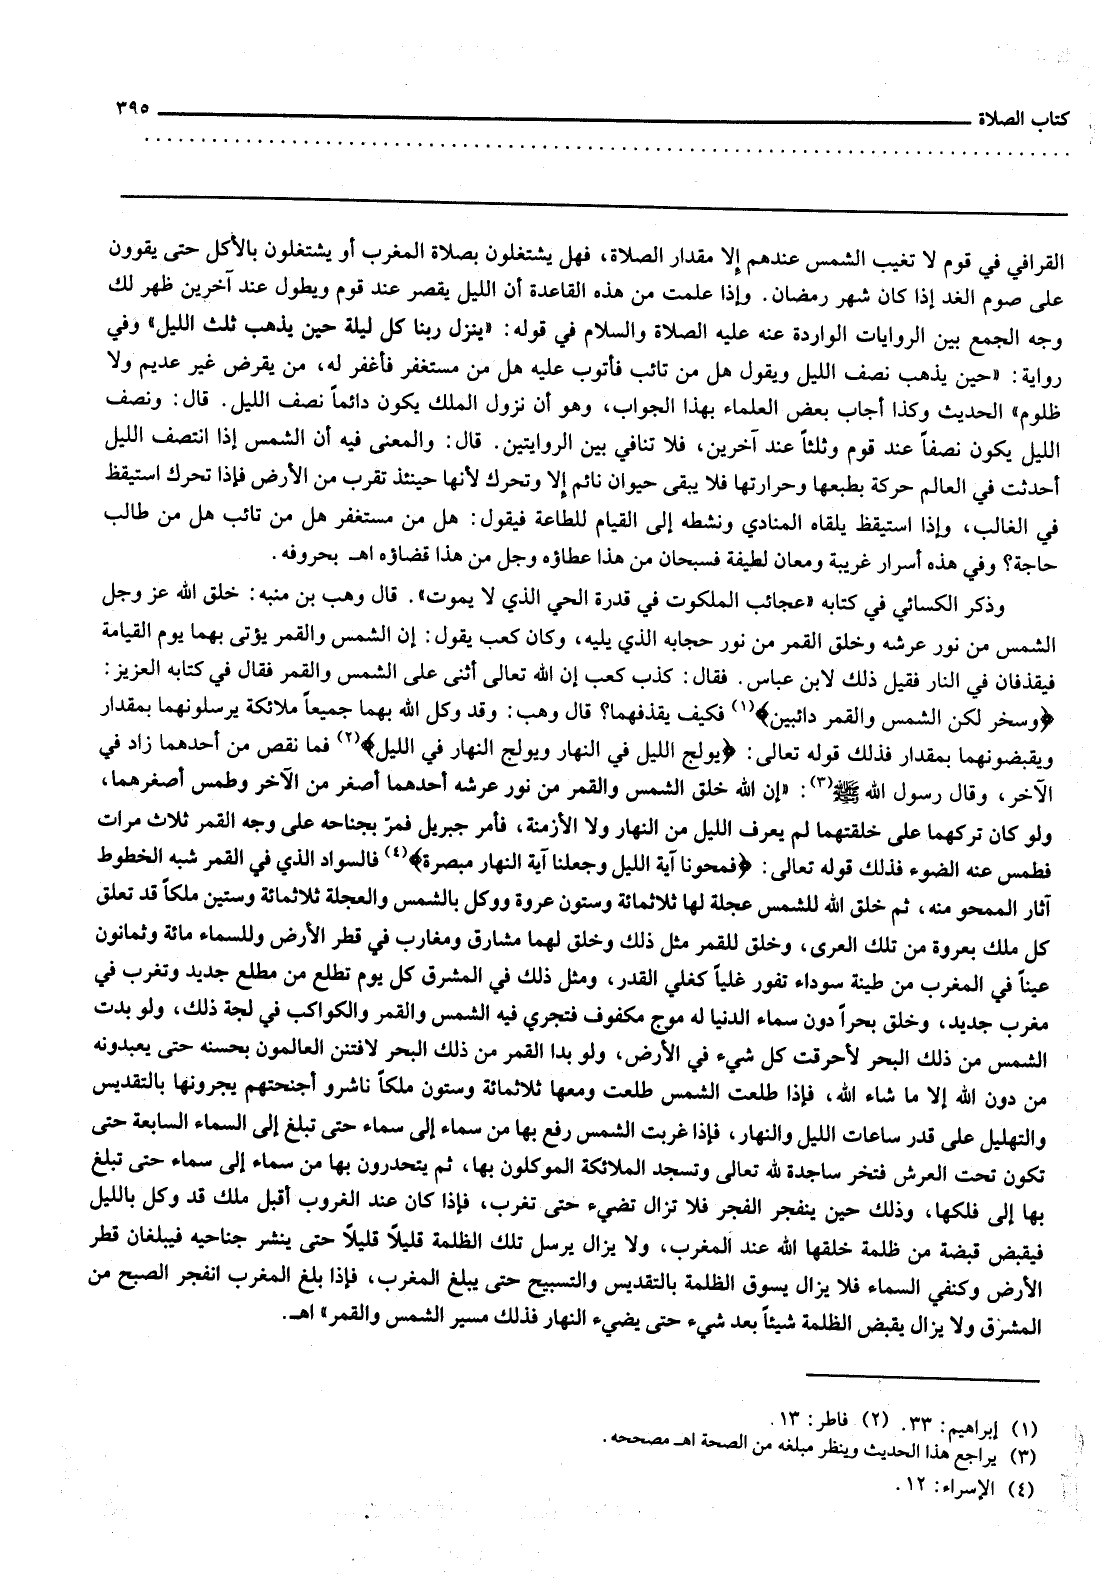 كتاب الصلاة ٣٩٥
القرافي في قوم لا تغيب الشمس عندهم إلا مقدار الصلاة، فهل يشتغلون بصلاة المغرب أو يشتغلون بالأكل حتى يقوون
على صوم الغد إذا كان شهر رمضان. وإذا علمت من هذه القاعدة أن الليل يقصر عند قوم ويطول عند آخرين ظهر لك
وجه الجمع بين الروايات الواردة عنه عليه الصلاة والسلام في قوله: «ينزل ربنا كل ليلة حين يذهب ثلث الليل» وفي
رواية: «حين يذهب نصف الليل ويقول هل من تائب فأتوب عليه هل من مستغفر فأغفر له، من يقرض غير عديم ولا
ظلوم» الحديث وكذا أجاب بعض العلماء بهذا الجواب، وهو أن نزول الملك يكون دائماً نصف الليل. قال: ونصف
الليل يكون نصفاً عند قوم وثلثاً عند آخرين، فلا تنافي بين الروايتين. قال: والمعنى فيه أن الشمس إذا انتصف الليل
أحدثت في العالم حركة بطبعها وحرارتها فلا يبقى حيوان نائم إلا وتحرك لأنها حينئذ تقرب من الأرض فإذا تحرك استيقظ
في الغالب، وإذا استيقظ يلقاه المنادي ونشطه إلى القيام للطاعة فيقول: هل من مستغفر هل من تائب هل من طالب
حاجة؟ وفي هذه أسرار غريبة ومعان لطيفة فسبحان من هذا عطاؤه وجل من هذا قضاؤه اهـ بحروفه.
وذكر الكسائي في كتابه «عجائب الملكوت في قدرة الحي الذي لا يموت». قال وهب بن منبه: خلق الله عز وجل
الشمس من نور عرشه وخلق القمر من نور حجابه الذي يليه، وكان كعب يقول: إن الشمس والقمر يؤتى بهما يوم القيامة
فيقذفان في النار فقيل ذلك لابن عباس. فقال: كذب كعب إن الله تعالى أثنى على الشمس والقمر فقال في كتابه العزيز:
﴿وسخر لكن الشمس والقمر دائبين﴾(١) فكيف يقذفهما؟ قال وهب: وقد وكل الله بهما جميعاً ملائكة يرسلونهما بمقدار
ويقبضونهما بمقدار فذلك قوله تعالى: ﴿يولج الليل في النهار ويولج النهار في الليل﴾(٢) فما نقص من أحدهما زاد في
الآخر، وقال رسول الله ﷺ(٣): «إن الله خلق الشمس والقمر من نور عرشه أحدهما أصغر من الآخر وطمس أصغرهما،
ولو كان تركهما على خلقتهما لم يعرف الليل من النهار ولا الأزمنة، فأمر جبريل فمرّ بجناحه على وجه القمر ثلاث مرات
فطمس عنه الضوء فذلك قوله تعالى: ﴿فمحونا آية الليل وجعلنا آية النهار مبصرة﴾(٤) فالسواد الذي في القمر شبه الخطوط
آثار الممحو منه، ثم خلق الله للشمس عجلة لها ثلاثمائة وستون عروة ووكل بالشمس والعجلة ثلاثمائة وستين ملكاً قد تعلق
كل ملك بعروة من تلك العرى، وخلق للقمر مثل ذلك وخلق لهما مشارق ومغارب في قطر الأرض وللسماء مائة وثمانون
عيناً في المغرب من طينة سوداء تفور غلياً كغلي القدر، ومثل ذلك في المشرق كل يوم تطلع من مطلع جديد وتغرب في
مغرب جديد، وخلق بحراً دون سماء الدنيا له موج مكفوف فتجري فيه الشمس والقمر والكواكب في لجة ذلك، ولو بدت
الشمس من ذلك البحر لأحرقت كل شيء في الأرض، ولو بدا القمر من ذلك البحر لافتتن العالمون بحسنه حتى يعبدونه
من دون الله إلا ما شاء الله، فإذا طلعت الشمس طلعت ومعها ثلاثمائة وستون ملكاً ناشرو أجنحتهم يجرونها بالتقديس
والتهليل على قدر ساعات الليل والنهار، فإذا غربت الشمس رفع بها من سماء إلى سماء حتى تبلغ إلى السماء السابعة حتى
تكون تحت العرش فتخر ساجدة لله تعالى وتسجد الملائكة الموكلون بها، ثم يتحدرون بها من سماء إلى سماء حتى تبلغ
بها إلى فلكها، وذلك حين ينفجر الفجر فلا تزال تضيء حتى تغرب، فإذا كان عند الغروب أقبل ملك قد وكل بالليل
فيقبض قبضة من ظلمة خلقها الله عند المغرب، ولا يزال يرسل تلك الظلمة قليلاً قليلاً حتى ينشر جناحيه فيبلغان قطر
الأرض وكنفي السماء فلا يزال يسوق الظلمة بالتقديس والتسبيح حتى يبلغ المغرب، فإذا بلغ المغرب انفجر الصبح من
المشرق ولا يزال يقبض الظلمة شيئاً بعد شيء حتى يضيء النهار فذلك مسير الشمس والقمر» اهـ.
(١) إبراهيم: ٣٣. (٢) فاطر: ١٣.
(٣) يراجع هذا الحديث وينظر مبلغه من الصحة اهـ مصححه.
(٤) الإسراء: ١٢.